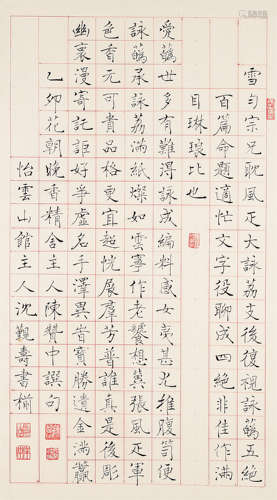 雪勻宗兄耽風疋大詠荔支後復視詠蘜五絕
百篇命題適忙文字役聊成四絕非佳作滿
目琳琅比也
愛蘜世多有難得詠成編料 尤推腹笥便
詠蘜承詠荔滿紙燦如雲寧作老饕想 張風疋軍
色香元可貴品格更宜超恍展群芳譜誰真是後彫
幽褱漫寄託詎好爭虛名手澤異昔寶勝遺金滿籯
乙卯花朝晚香精舍主人陳贊中譔句
怡雲山館主人沈覲壽書